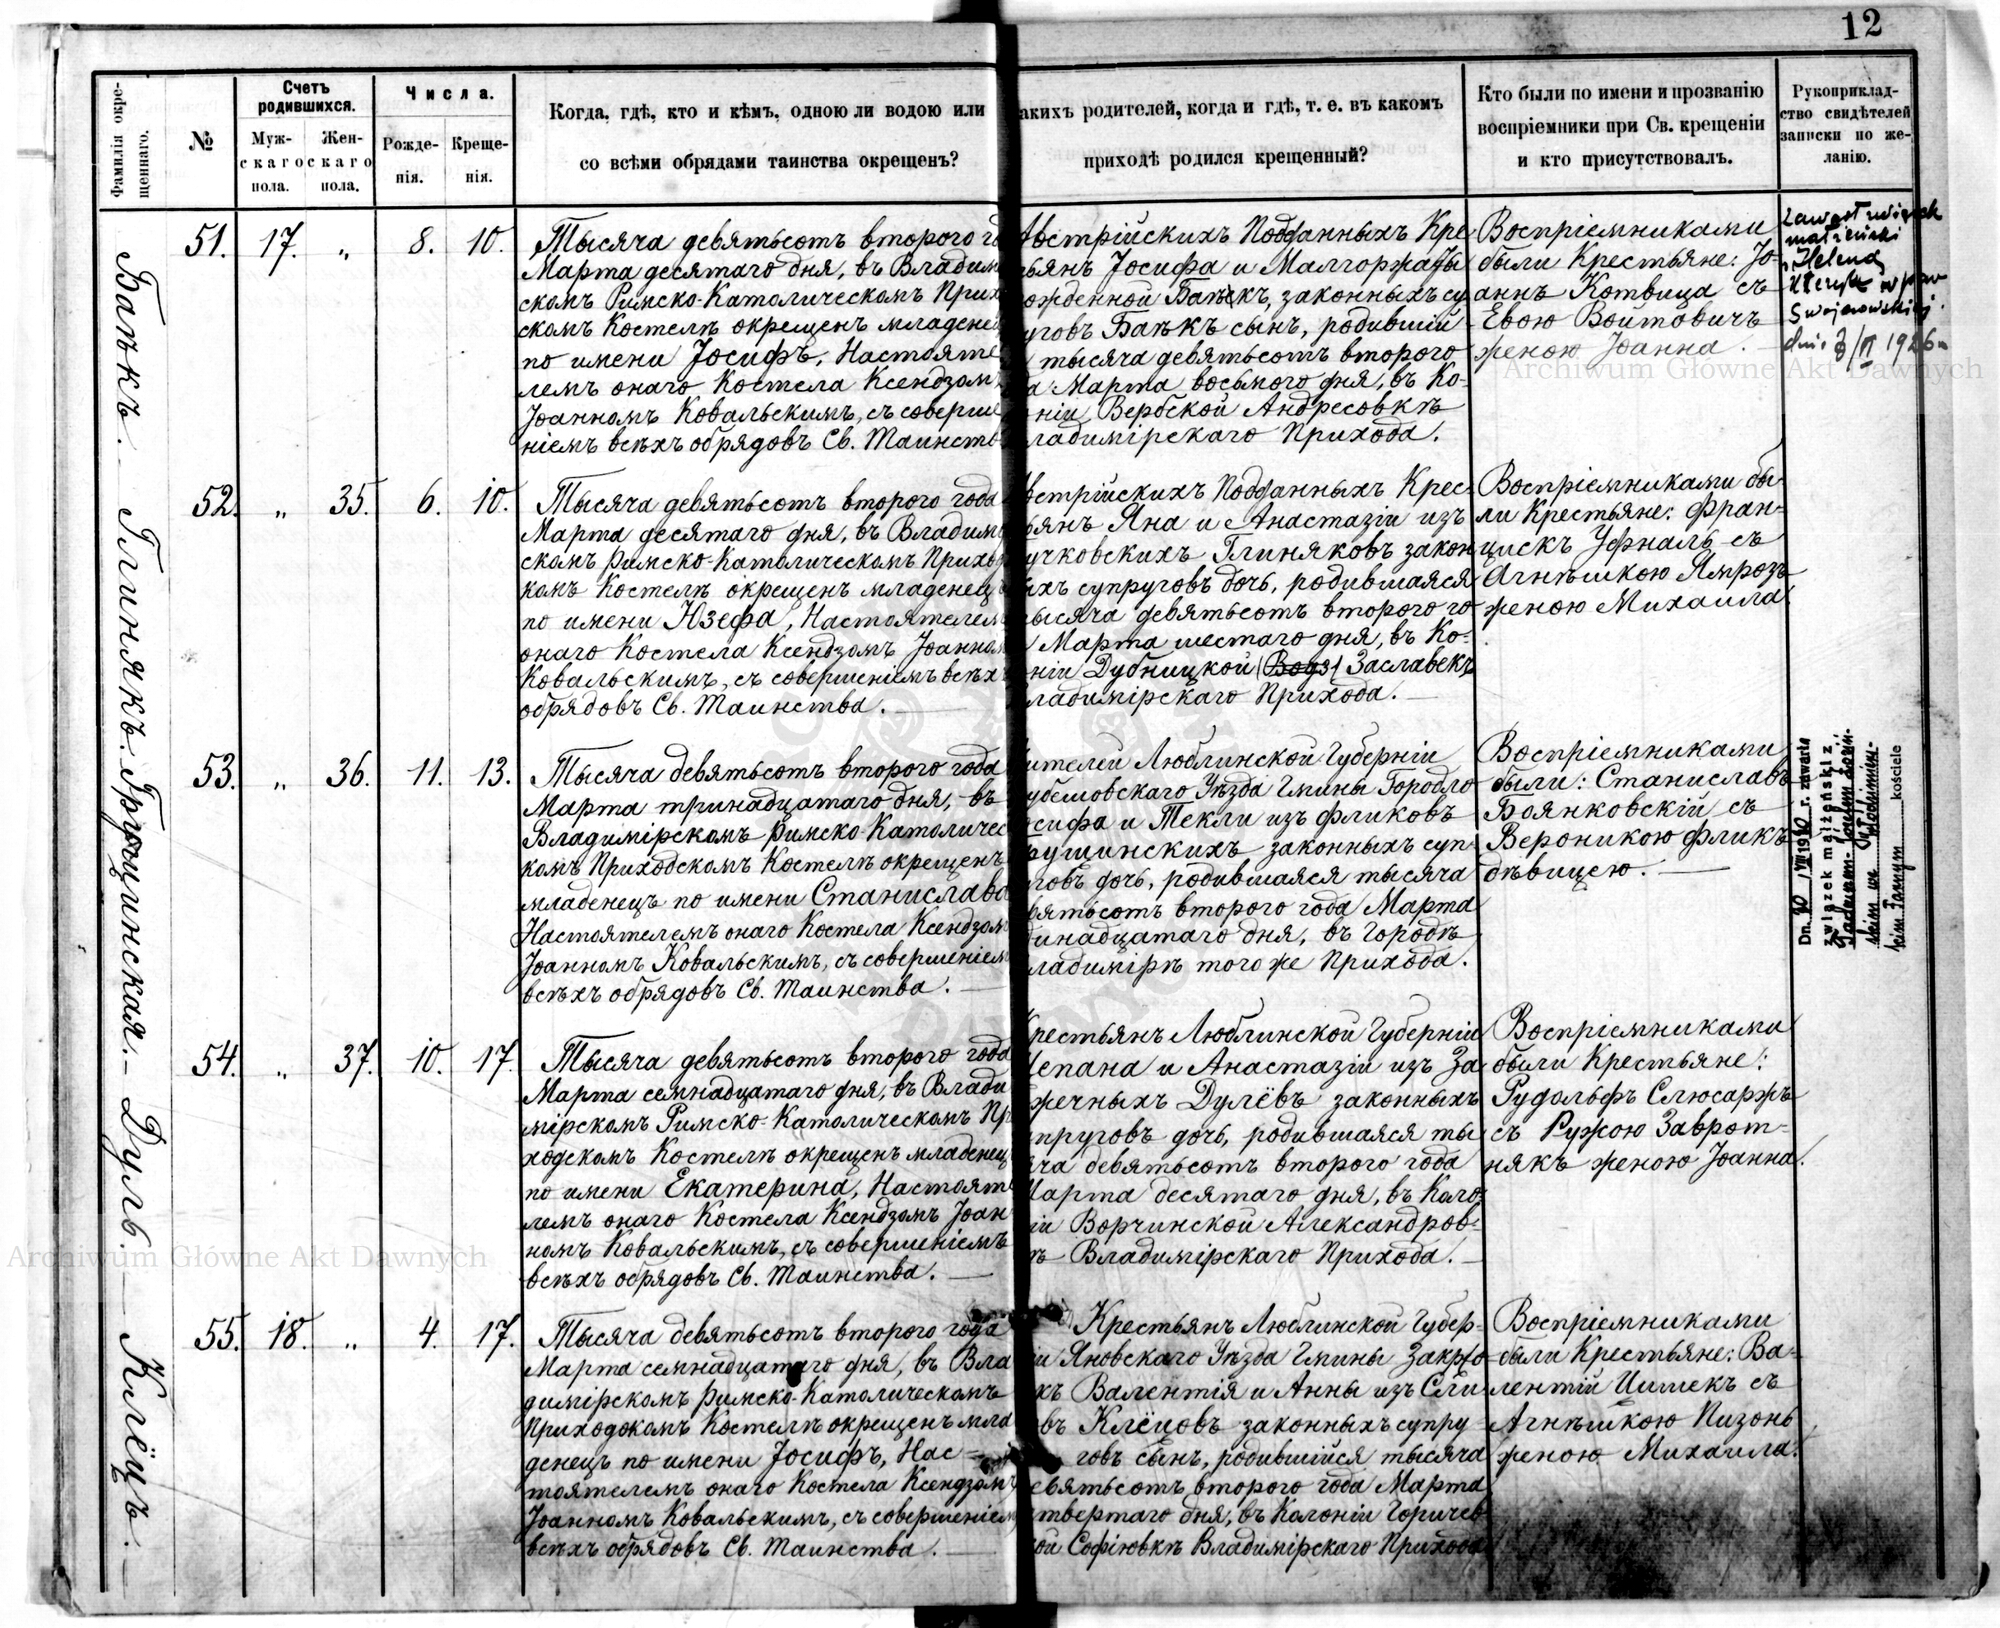 12
Фамилія окре-
щеннаго.
№
Счетъ
родившихся.
Муж-
скаго
пола.
Жен-
скаго
пола.
Числа.
Рожде-
нія.
Креще-
нія.
Когда, гдѣ, кто и кѣмъ, одною ли водою или
со всѣми обрядами таинства окрещенъ?
акихъ родителей, когда и гдѣ, т. е. въ какомъ
приходѣ родился крещенный?
Кто были по имени и прозванію
воспріемники при Св. крещеніи
и кто присутствовалъ.
Рукоприклад-
ство свидѣтелей
записки по же-
ланію.
Бакъкъ.
51. 17. „ 8. 10.
Тысяча девятьсотъ второго го
Марта десятаго дня, въ Владим
скомъ Римско-Католическомъ Прих
скомъ Костелѣ окрещенъ младенец
по имени Іосифъ, Настояте
лемъ онаго Костела Ксендзомъ
Іоанномъ Ковальскимъ, съ соверше
ніемъ всѣхъ обрядовъ Св. Таинств
Австрійскихъ Подданныхъ Кре
ьянъ Іосифа и Малгоржаты
ожденной законныхъ су
уговъ сынъ, родившій
тысяча девятьсотъ второго
да Марта восьмого дня, въ Ко-
ніи Вербской Андресовкѣ
ладимірскаго Прихода.
Воспріемниками
были Крестьяне: Іо-
аннъ Котвица съ
Евою Войтовичъ
женою Іоанна.
Zawarł związek
małżeński
Helena
w par
Swojczowskiej
dnia 1926
Archiwum Główne Akt Dawnych
Глинякъ.
52. „ 35. 6. 10.
Тысяча девятьсотъ второго года
Марта десятаго дня, въ Владим
скомъ Римско-Католическомъ Приход
комъ Костелѣ окрещенъ младенец
по имени Юзефа, Настоятелем
онаго Костела Ксендзомъ Іоанном
Ковальскимъ, съ совершеніемъ всѣхъ
обрядовъ Св. Таинства.
встрійскихъ Подданныхъ Крес-
ьянъ Яна и Анастазіи изъ
учковскихъ Глиняковъ закон
ыхъ супруговъ дочь, родившаяся
тысяча девятьсотъ второго го
Марта шестаго дня, въ Ко-
ніи Дубницкой Заславекъ
ладимірскаго Прихода.
Воспріемниками бы-
ли Крестьяне: Фран-
цискъ Уфналь съ
Агнѣшкою Ямрозъ
женою Михаила.
Грущинская.
53. „ 36. 11. 13.
Тысяча девятьсотъ второго года
Марта тринадцатаго дня, въ
Владимірскомъ Римско-Католичес
комъ Приходскомъ Костелѣ окрещенъ
младенецъ по имени Станислава
Настоятелемъ онаго Костела Ксендзом
Іоанномъ Ковальскимъ, съ совершеніем
всѣхъ обрядовъ Св. Таинства.
ителей Люблинской Губерніи
убешовскаго Уѣзда Гмины Городло
осифа и Текли изъ Фликовъ
рущинскихъ законныхъ суп-
говъ дочь, родившаяся тысяча
вятьсотъ второго года Марта
динадцатаго дня, въ Городѣ
ладимірѣ того же Прихода.
Воспріемниками
были: Станиславъ
Боянковскій съ
Вероникою Фликъ
дѣвицею.
Dn. 30/VIII 1930 r. zawarła
związek małżeński z
Tadeuszem-
skim we Włodzimier-
skim Farnym kościele
Дуль.
54. „ 37. 10. 17.
Тысяча девятьсотъ второго года
Марта семнадцатаго дня, въ Влади
мірскомъ Римско-Католическомъ Пр
ходскомъ Костелѣ окрещенъ младенец
по имени Екатерина, Настояте
лемъ онаго Костела Ксендзомъ Іоан
номъ Ковальскимъ, съ совершеніемъ
всѣхъ обрядовъ Св. Таинства.
Крестьянъ Люблинской Губерніи
епана и Анастазіи изъ За
жечныхъ Дулёвъ законныхъ
упруговъ дочь, родившаяся ты
яча девятьсотъ второго года
Марта десятаго дня, въ Коло
іи Ворчинской Александров-
ѣ Владимірскаго Прихода.
Воспріемниками
были Крестьяне:
Рудольфъ Слюсаржъ
съ Ружою Заврот-
някъ женою Іоанна.
Archiwum Główne Akt Dawnych
Клёцъ.
55. 18. „ 4. 17.
Тысяча девятьсотъ второго года
Марта семнадцатаго дня, въ Вла
димірскомъ Римско-Католическомъ
Приходскомъ Костелѣ окрещенъ мла
денецъ по имени Іосифъ, Нас-
тоятелемъ онаго Костела Ксендзомъ
Іоанномъ Ковальскимъ, съ совершеніем
всѣхъ обрядовъ Св. Таинства.
Крестьянъ Люблинской Губер-
іи Яновскаго Уѣзда Гмины Закржо
къ Валентія и Анны изъ Сли
овъ Клёцовъ законныхъ супру
говъ сынъ, родившійся тысяча
евятьсотъ второго года Марта
твертаго дня, въ Колоніи Горичев
кой Софіювкѣ Владимірскаго Прихода
Воспріемниками
были Крестьяне: Ва-
лентій Цимекъ съ
Агнѣшкою Пизонь
женою Михаила.